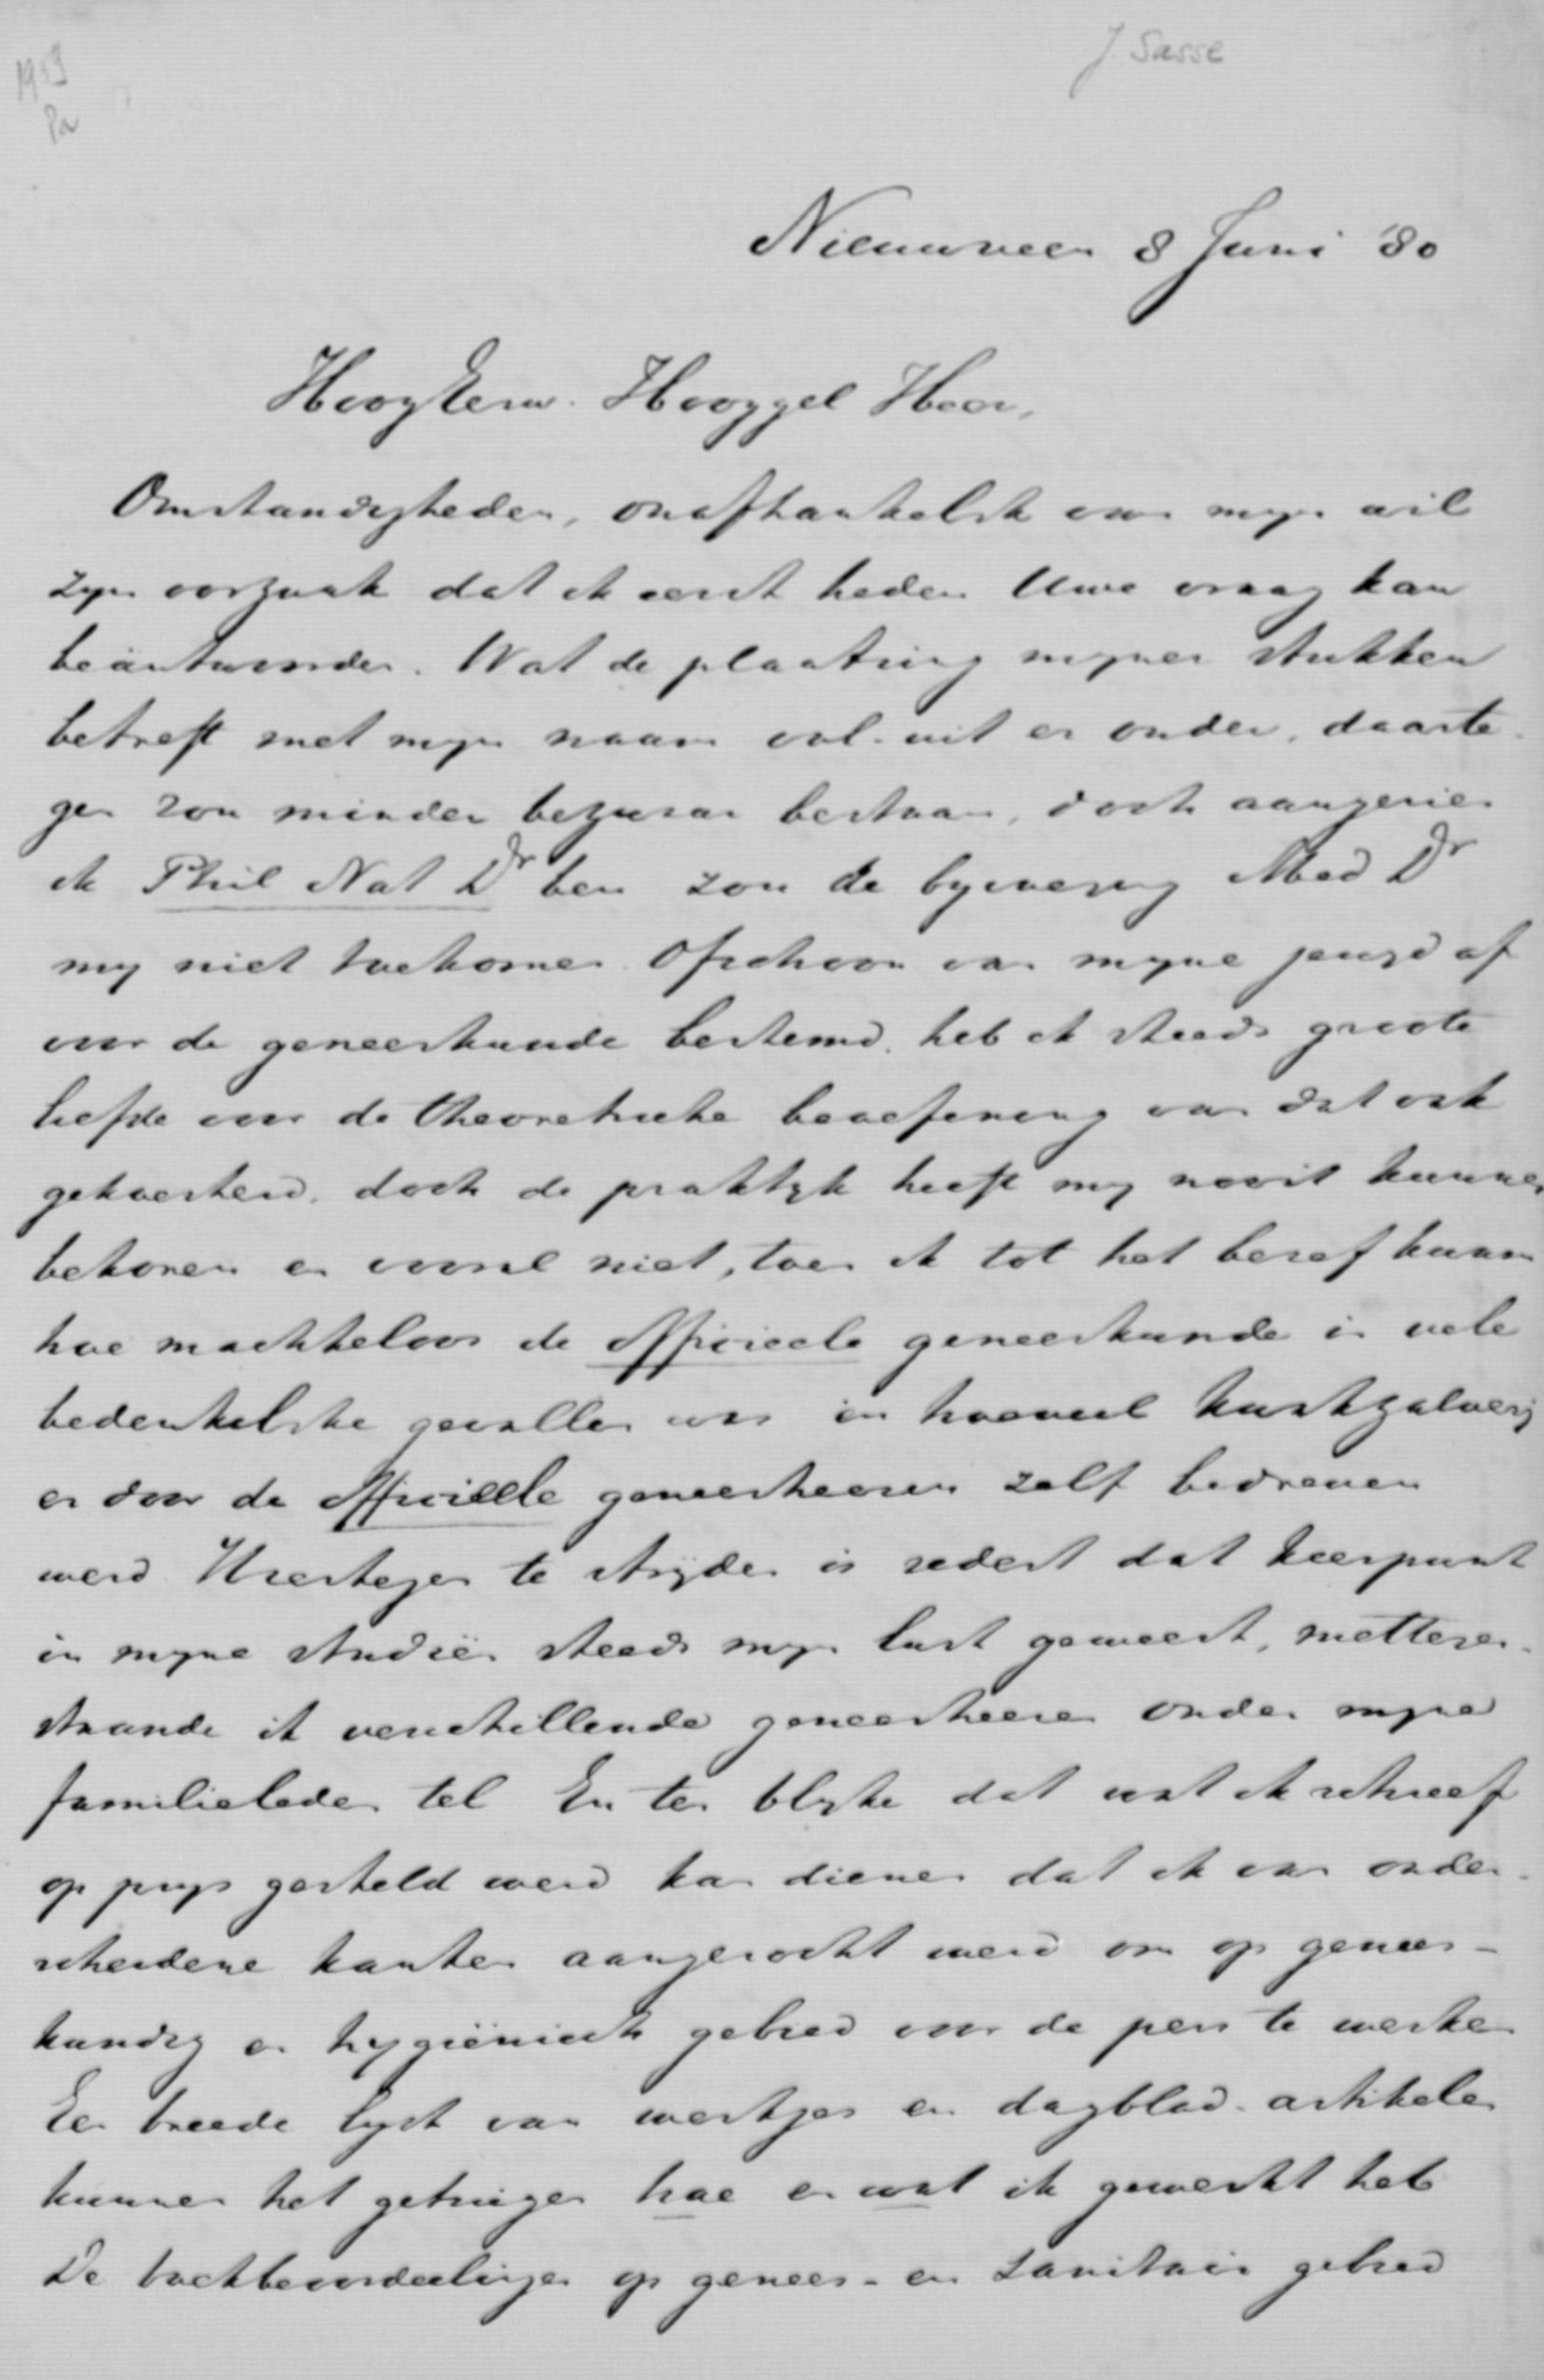 J. Sasse
Pa
Nieuwveen 8 Juni '80
HoogEerw. Hooggel Heer,
Omstandigheden, onafhankelyk van myn wil
zyn oorzaak dat ik eerst heden Uwe vraag kan
beäntwoorden. Wat de plaatsing myner stukken
betreft met myn naam vol-uit er onder, daarte-
gen zou minder bezwaar bestaan, doch aangezien
ik Phil Nat Dr ben zou de byvoeging Med Dr
my niet toekomen. Ofschoon van myne jeugd af
voor de geneeskunde bestemd, heb ik steeds groote
liefde voor de theoretische beoefening van dat vak
gekoesterd, doch de praktyk heeft my nooit kunnen
bekoren en vooral niet, toen ik tot het besef kwam
hoe machteloos de officieele geneeskunde in vele
bedenkelyke gevallen was en hoeveel kwakzalvery
er door de officiëele geneesheeren zelf bedreven
werd Hiertegen te stryden is sedert dat keerpunt
in myne studiën steeds myn lust geweest, niettegen-
staande ik verschillende geneesheeren onder myne
familieleden tel En ten blyke dat wat ik schreef
op prys gesteld werd kan dienen dat ik van onder-
scheidene kanten aangezocht werd om op genees-
kundig en hygiënisch gebied voor de pers te werken
Een breede lyst van werkjes en dagblad-artikelen
kunnen het getuigen hoe en wat ik gewerkt heb
De boekbeoordeelingen op genees- en sanitair gebied